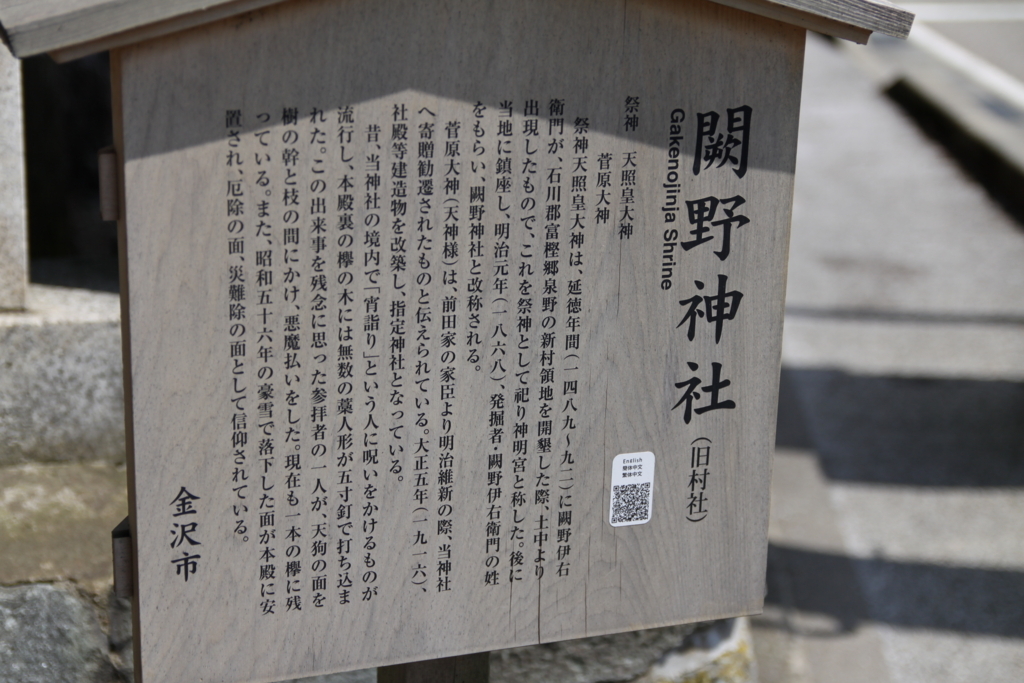 闕野神社(旧村社)
Gakenojinja Shrine
祭神 天照皇大神
菅原大神
祭神天照皇大神は、延徳年間(一四八九〜九二)に闕野伊右
衛門が、石川郡富樫郷泉野の新村領地を開墾した際、土中より
出現したもので、これを祭神として祀り神明宮と称した。後に
当地に鎮座し、明治元年(一八六八)、発掘者・闕野伊右衛門の姓
をもらい、闕野神社と改称される。
菅原大神(天神様)は、前田家の家臣より明治維新の際、当神社
へ寄贈勧遷されたものと伝えられている。大正五年(一九一六)、
社殿等建造物を改築し、指定神社となっている。
昔、当神社の境内で「宵詣り」という人に呪いをかけるものが
流行し、本殿裏の欅の木には無数の藁人形が五寸釘で打ち込ま
れた。この出来事を残念に思った参拝者の一人が、天狗の面を
樹の幹と枝の間にかけ、悪魔払いをした。現在も一本の欅に残
っている。また、昭和五十六年の豪雪で落下した面が本殿に安
置され、厄除の面、災難除の面として信仰されている。
金沢市
English
簡体中文
繁体中文